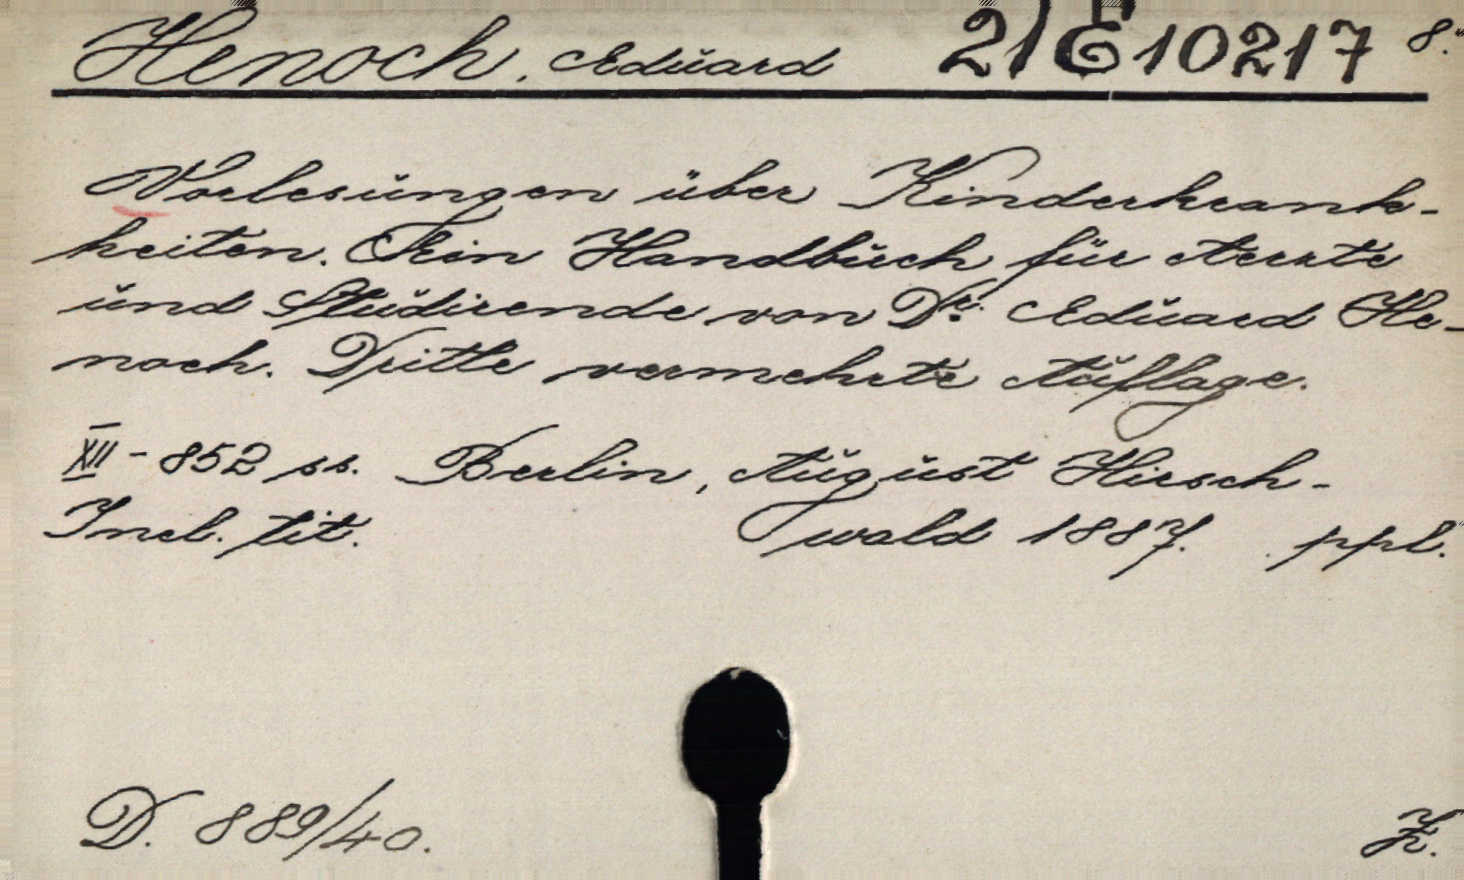 Henoch, Eduard 21 E 10217 8.°
Vorlesungen über Kinderkrank-
heiten. Ein Handbuch für Aerzte
und Studirende von Dr. Eduard He-
noch. Dritte vermehrte Auflage.
XII - 852 ss. Berlin, August Hirsch-
Incl. tit. wald 1887. ppl.
D. 889/40. K.